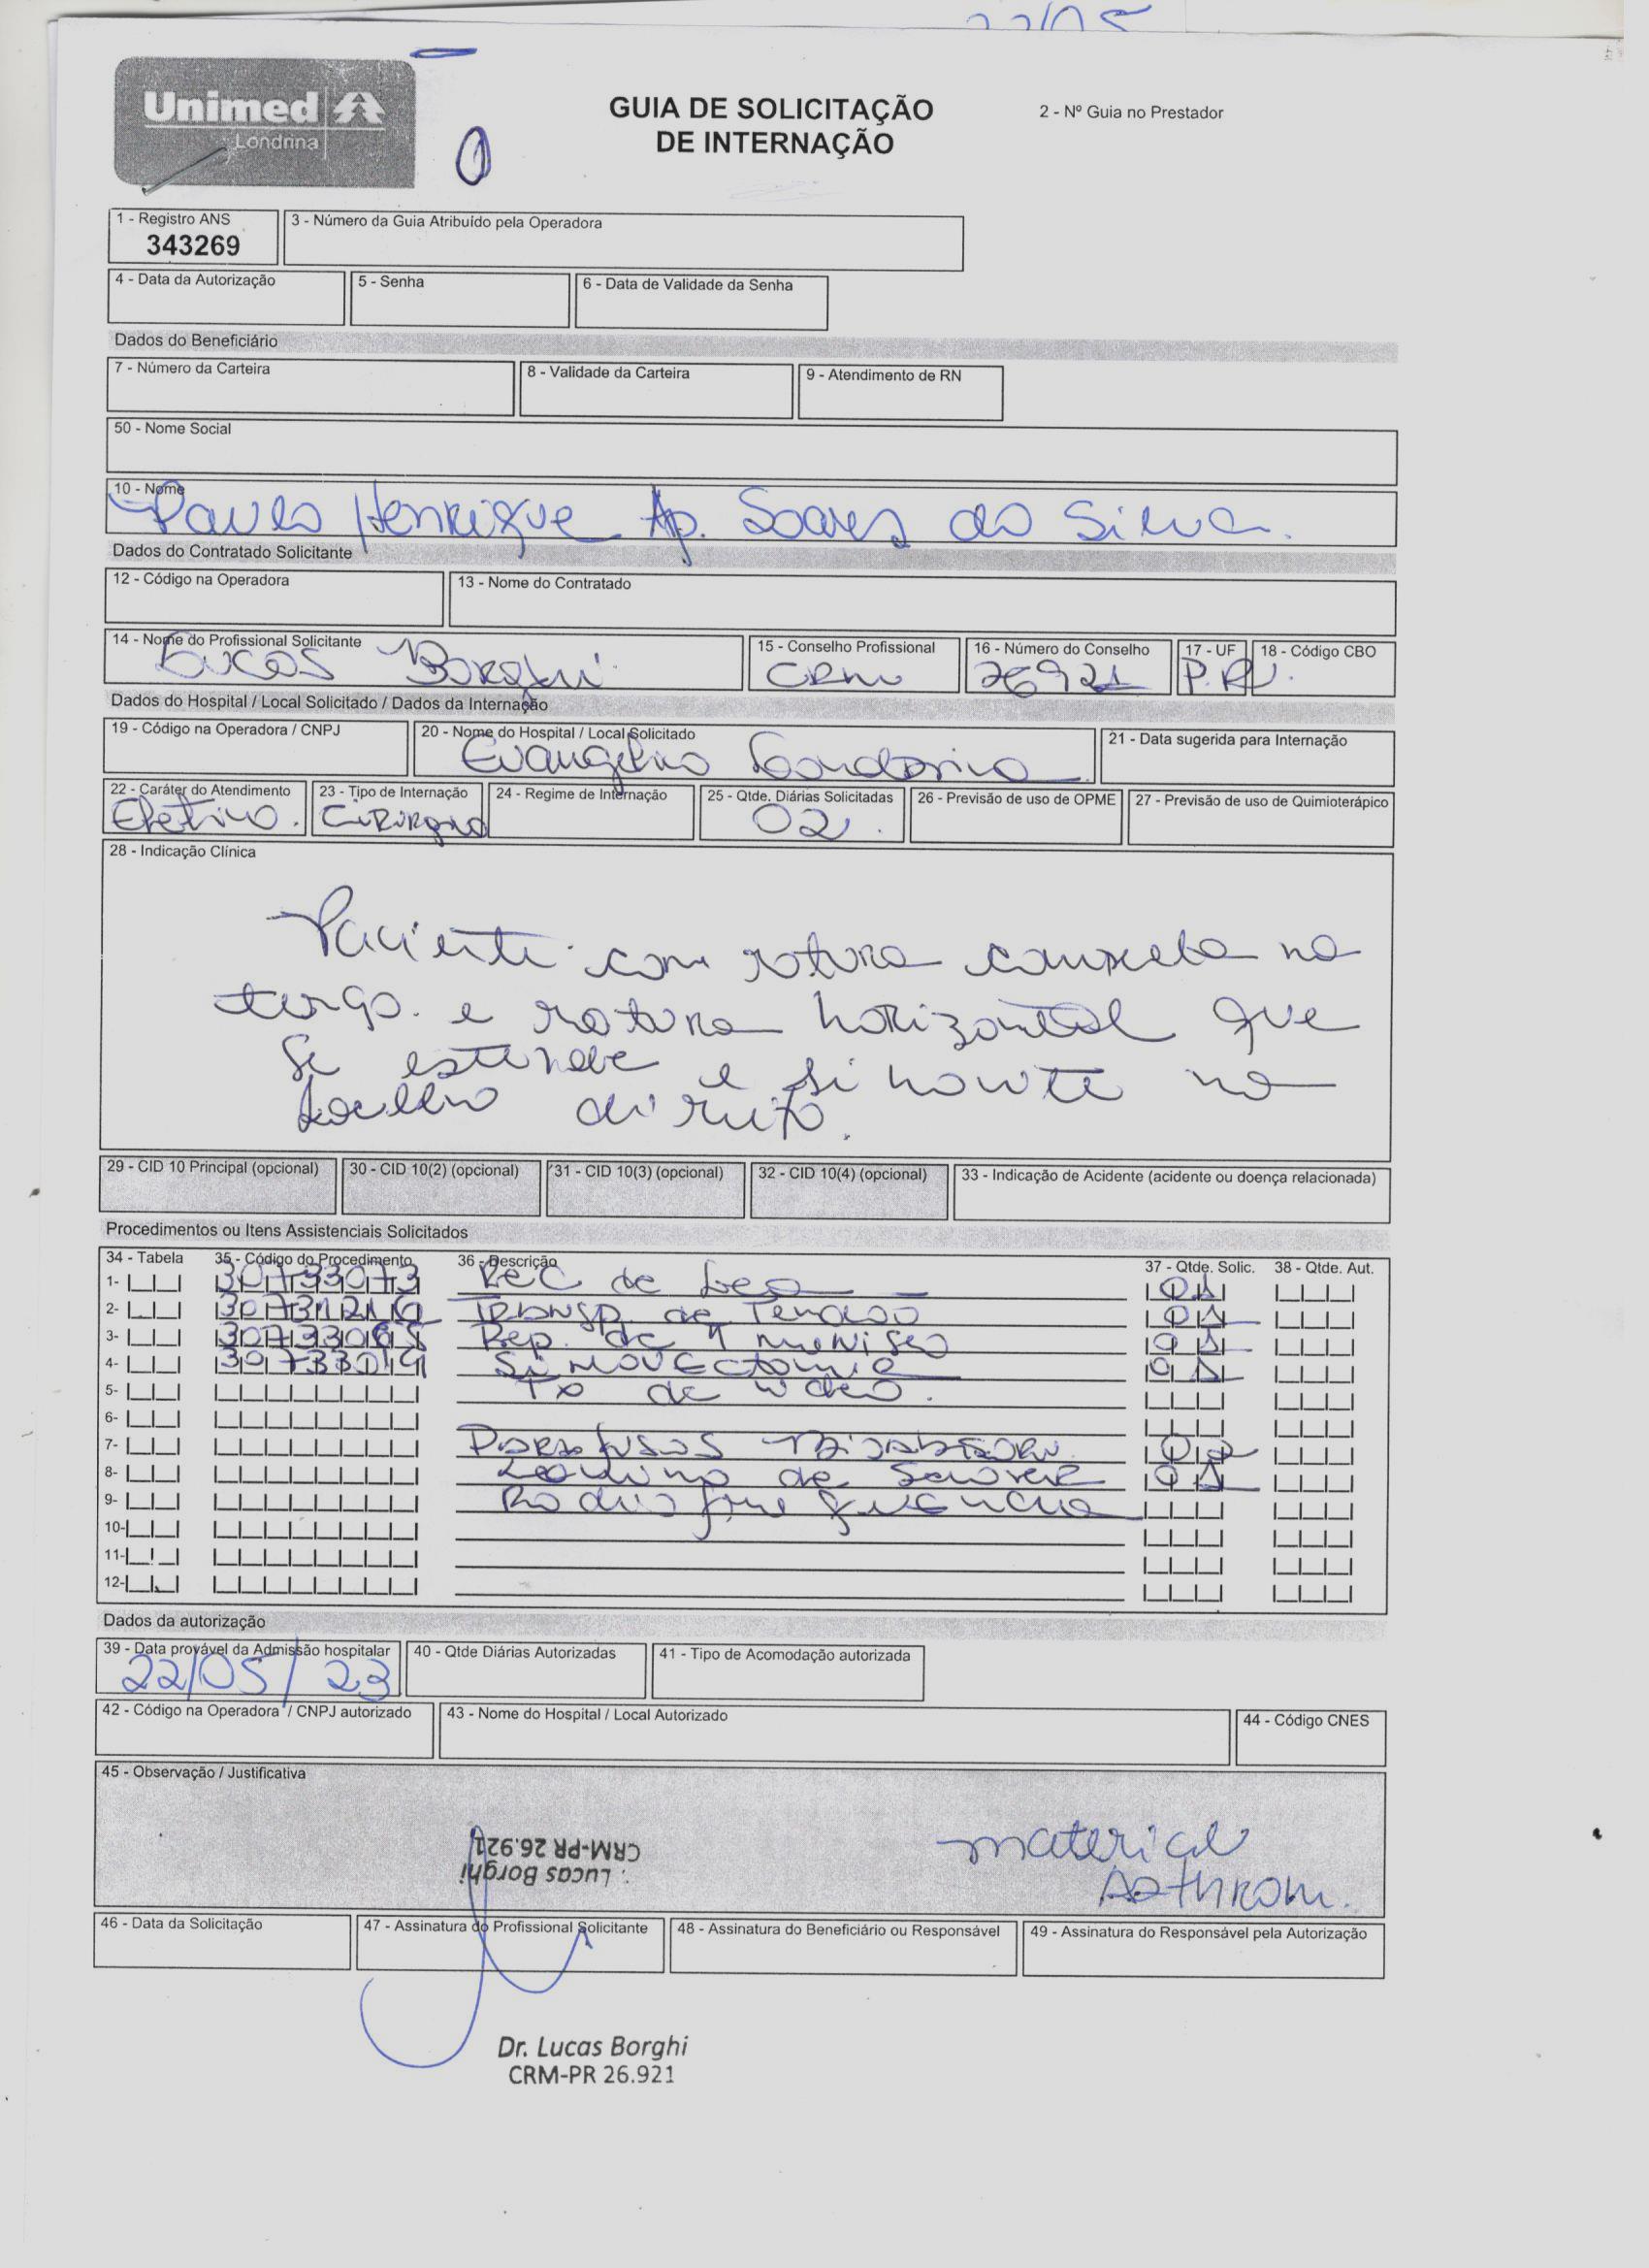 22/05
Unimed
Londrina
GUIA DE SOLICITAÇÃO
DE INTERNAÇÃO
2 - Nº Guia no Prestador
1 - Registro ANS
343269
3 - Número da Guia Atribuído pela Operadora
4 - Data da Autorização
5 - Senha
6 - Data de Validade da Senha
Dados do Beneficiário
7 - Número da Carteira
8 - Validade da Carteira
9 - Atendimento de RN
50 - Nome Social
10 - Nome
Paulo Henrique Ap. Soares da Silva.
Dados do Contratado Solicitante
12 - Código na Operadora
13 - Nome do Contratado
14 - Nome do Profissional Solicitante
Lucas Borghi
15 - Conselho Profissional
CRM
16 - Número do Conselho
26921
17 - UF
PR
18 - Código CBO
Dados do Hospital / Local Solicitado / Dados da Internação
19 - Código na Operadora / CNPJ
20 - Nome do Hospital / Local Solicitado
Evangélico Londrina
21 - Data sugerida para Internação
22 - Caráter do Atendimento
Eletivo.
23 - Tipo de Internação
24 - Regime de Internação
25 - Qtde. Diárias Solicitadas
02.
26 - Previsão de uso de OPME
27 - Previsão de uso de Quimioterápico
28 - Indicação Clínica
Paciente com rotura completa no
e rotura horizontal que
se estende e sinovite no
Joelho direito.
29 - CID 10 Principal (opcional)
30 - CID 10(2) (opcional)
31 - CID 10(3) (opcional)
32 - CID 10(4) (opcional)
33 - Indicação de Acidente (acidente ou doença relacionada)
Procedimentos ou Itens Assistenciais Solicitados
34 - Tabela
35 - Código do Procedimento
36 - Descrição
37 - Qtde. Solic.
38 - Qtde. Aut.
1- 30733073 Rec de 01
2- Transp. de Tendão 01
3- 30733065 Rep. de 1 menisco 01
4- Sinovectomia 01
5- Tx de video.
6-
7- Parafusos 02
8- de 01
9- Radiofrequência
10-
11-
12-
Dados da autorização
39 - Data provável da Admissão hospitalar
22/05/23
40 - Qtde Diárias Autorizadas
41 - Tipo de Acomodação autorizada
42 - Código na Operadora / CNPJ autorizado
43 - Nome do Hospital / Local Autorizado
44 - Código CNES
45 - Observação / Justificativa
Lucas Borghi
CRM-PR 26.921
material
Arthrom.
46 - Data da Solicitação
47 - Assinatura do Profissional Solicitante
48 - Assinatura do Beneficiário ou Responsável
49 - Assinatura do Responsável pela Autorização
Dr. Lucas Borghi
CRM-PR 26.921